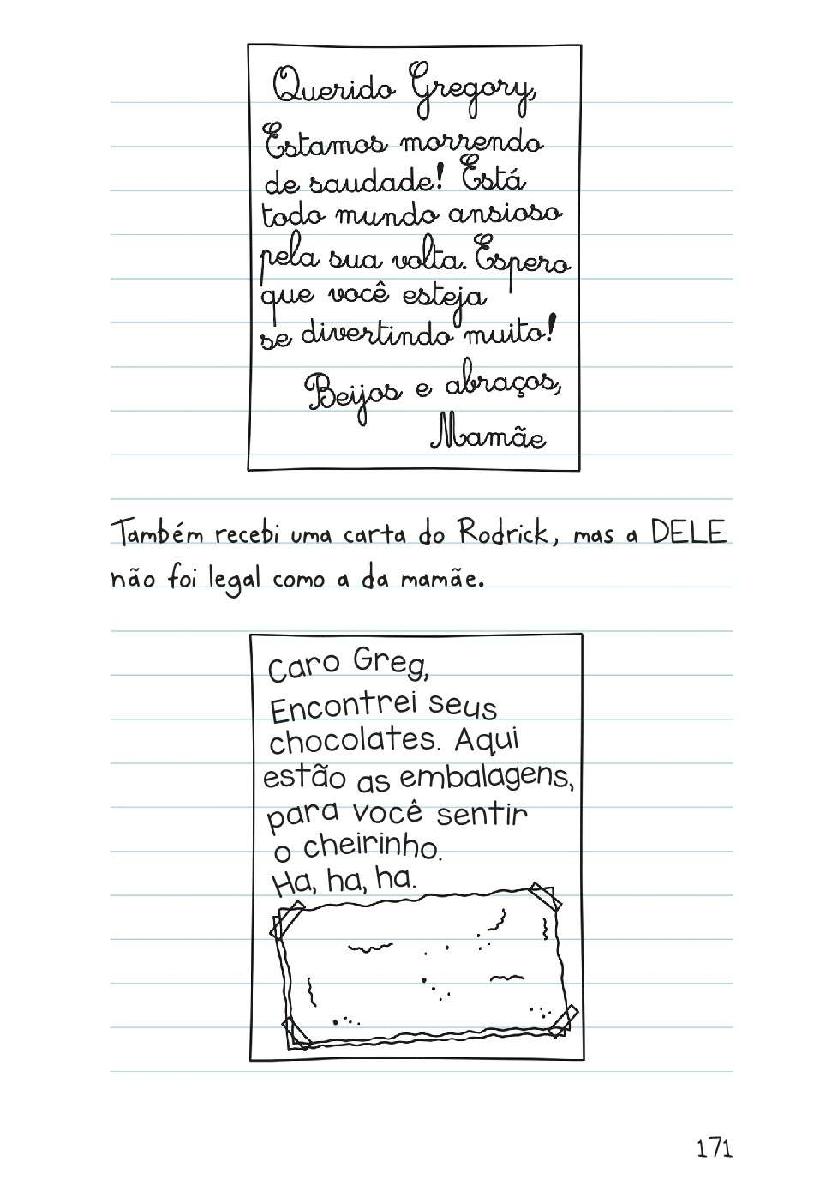 Querido Gregory,
Estamos morrendo
de saudade! Está
todo mundo ansioso
pela sua volta. Espero
que você esteja
se divertindo muito!
Beijos e abraços,
Mamãe
Também recebi uma carta do Rodrick, mas a DELE
não foi legal como a da mamãe.
Caro Greg,
Encontrei seus
chocolates. Aqui
estão as embalagens,
para você sentir
o cheirinho.
Ha, ha, ha.
171